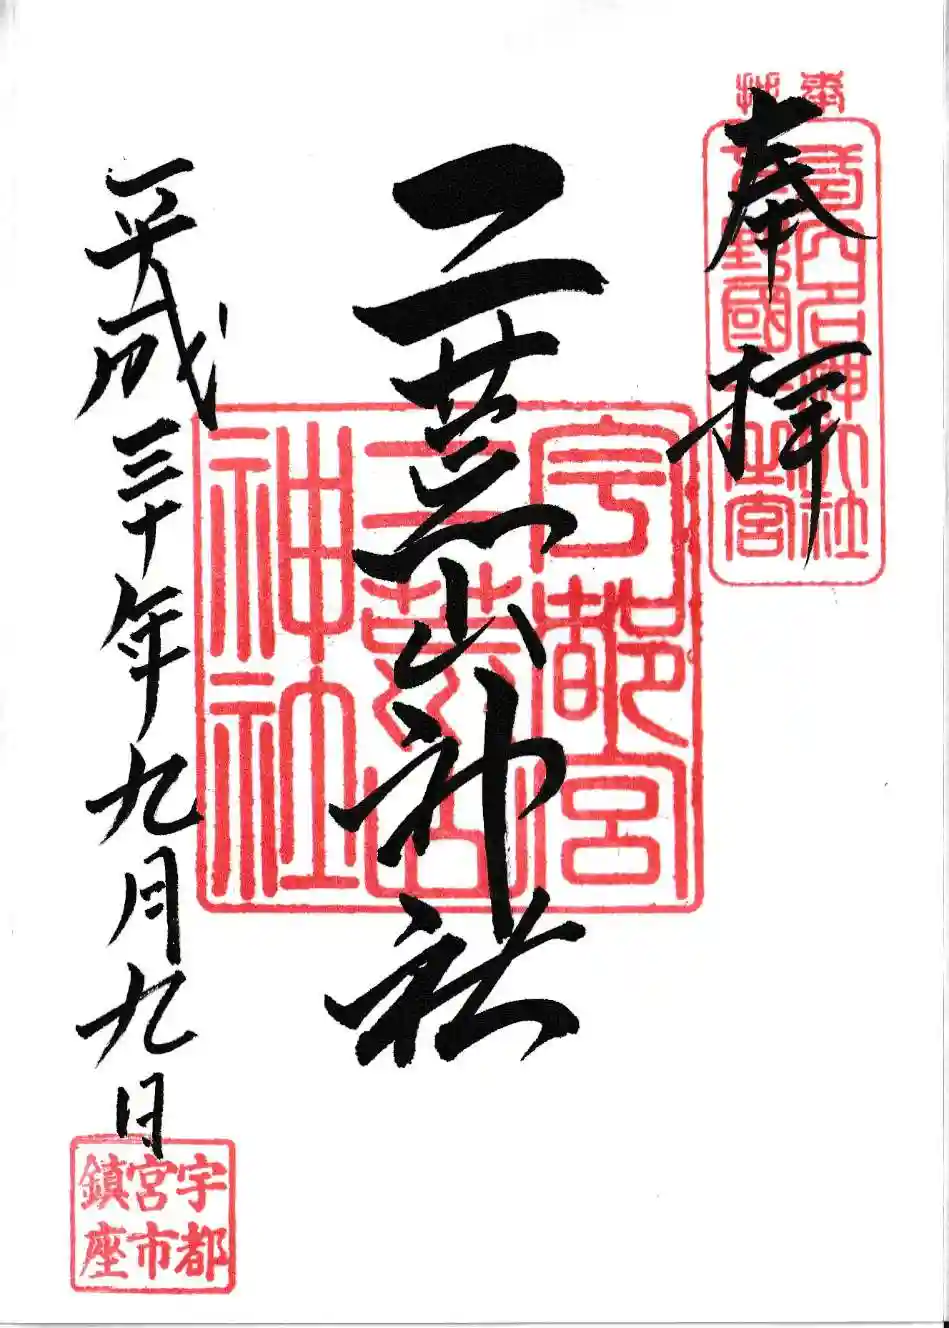 奉拝
奉拝
式内名神大社
下野國一之宮
二荒山神社
宇都宮
二荒山
神社
平成三十年九月九日
宇都
宮市
鎮座